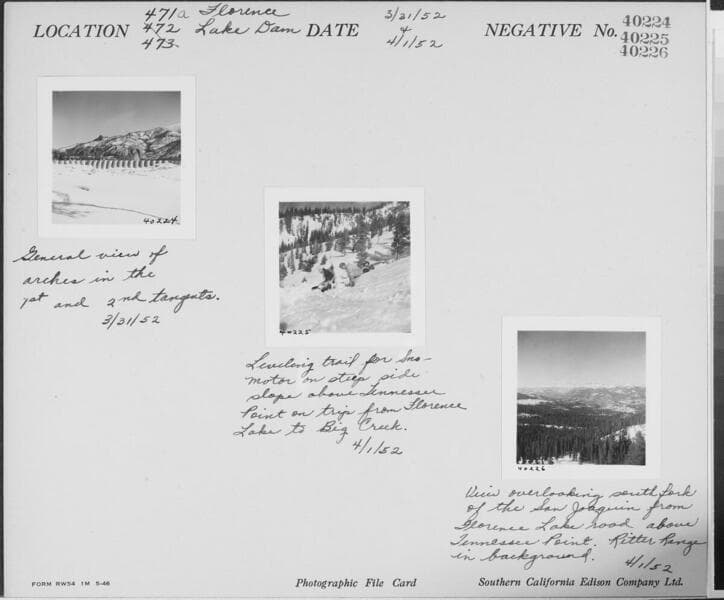 LOCATION 471a Florence
472 Lake Dam
473
DATE 3/31/52
&
4/1/52
NEGATIVE No. 40224
40225
40226
40224
General view of
arches in the
1st and 2nd tangents.
3/31/52
40225
Leveling trail for Sno-
motor on steep side
slope above Tennessee
Point on trip from Florence
Lake to Big Creek.
4/1/52
40226
View overlooking south fork
of the San Joaquin from
Florence Lake road above
Tennessee Point. Ritter Range
in background.
4/1/52
FORM RW54 1M 5-46
Photographic File Card
Southern California Edison Company Ltd.